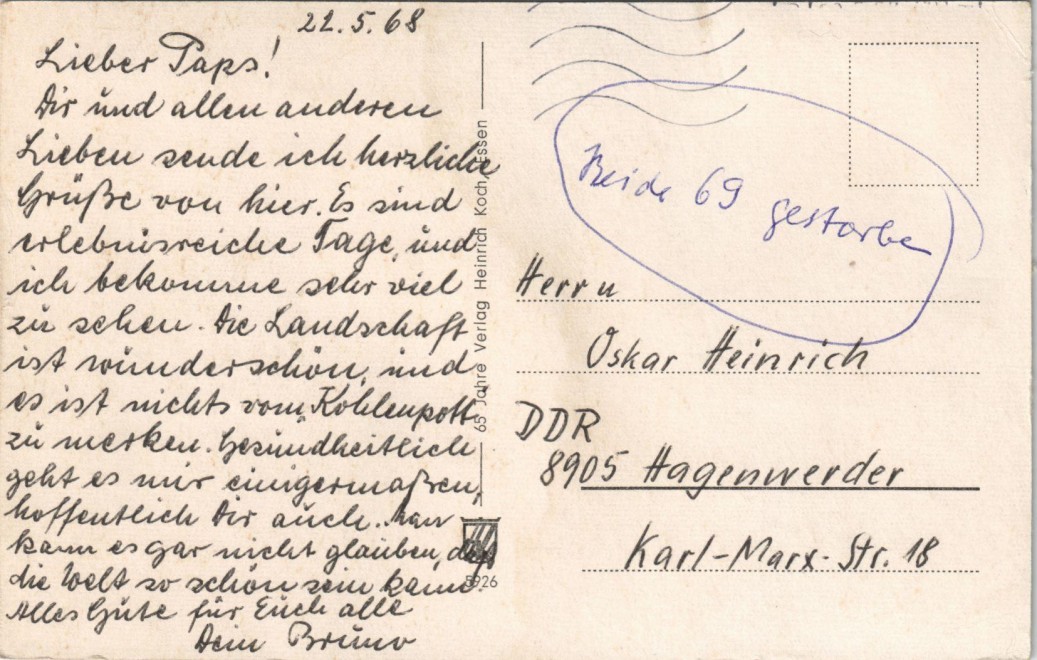 22.5.68
Lieber Paps!
Dir und allen anderen
Lieben sende ich herzliche
Grüße von hier. Es sind
erlebnisreiche Tage, und
ich bekomme sehr viel
zu sehen. Die Landschaft
ist wunderschön, und
es ist nichts vom Kohlenpott
zu merken. Gesundheitlich
geht es mir einigermaßen,
hoffentlich Dir auch. Man
kann es gar nicht glauben, daß
die Welt so schön sein kann.
Alles Gute für Euch alle
Dein Bruno
65 Jahre Verlag Heinrich Koch, Essen
5926
Beide 69 gestorbe
Herrn
Oskar Heinrich
DDR
8905 Hagenwerder
Karl-Marx-Str. 18